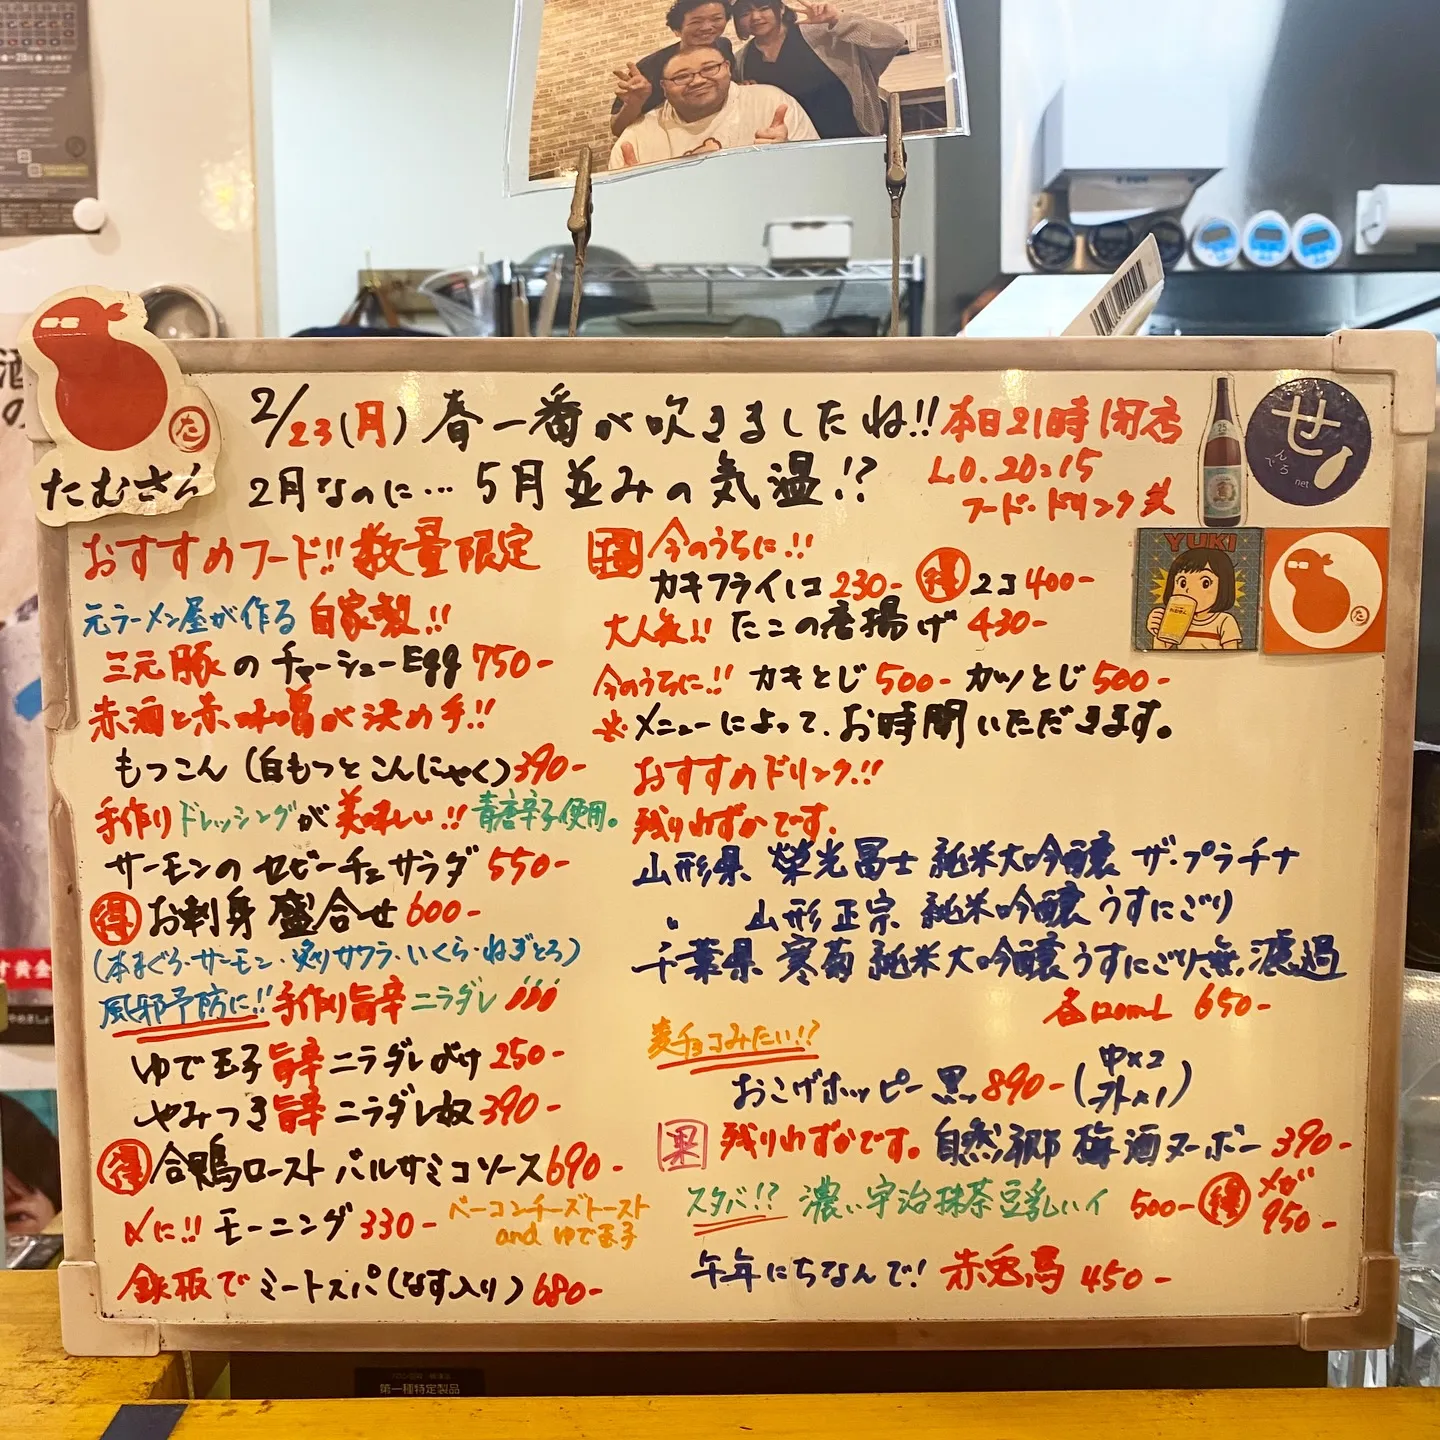 たむさん
た
2/23(月)春一番が吹きましたね!!
2月なのに…5月並みの気温!?
本日21時閉店
L.O. 20:15
フード・ドリンク共
せ
でんろ
net
YUKI
おすすめフード!!数量限定
元ラーメン屋が作る 自家製!!
三元豚のチャーシューEgg 750-
赤酒と赤味噌が決め手!!
もつこん(白もつとこんにゃく)390-
手作りドレッシングが美味しい!!青唐辛子使用。
サーモンのセビーチェサラダ 550-
得 お刺身盛合せ 600-
(本まぐろ・サーモン・炙りサワラ・いくら・ねぎとろ)
風邪予防に!!手作り旨辛ニラダレ
ゆで玉子旨辛ニラダレがけ 250-
やみつき旨辛ニラダレ奴 390-
得 合鴨ロースト バルサミコソース 690-
〆に!!モーニング 330-
ベーコンチーズトースト
and ゆで玉子
鉄板でミートスパ(なす入り) 680-
今のうちに!!
カキフライ1コ 230- 得 2コ 400-
大人気!! たこの唐揚げ 430-
今のうちに!! カキとじ 500- カツとじ 500-
※メニューによって、お時間いただきます。
おすすめドリンク!!
残りわずかです。
山形県 榮光冨士 純米大吟醸 ザ・プラチナ
〃 山形正宗 純米吟醸うすにごり
千葉県 寒菊 純米大吟醸うすにごり無濾過
各120mL 650-
麦チョコみたい!?
おこげホッピー黒 890-(中×2
外×1)
果 残りわずかです。自然郷 梅酒ヌーボー 390-
スタバ!? 濃い宇治抹茶豆乳ハイ 500- 得 メガ
950-
午年にちなんで!赤兎馬 450-
第一種特定製品